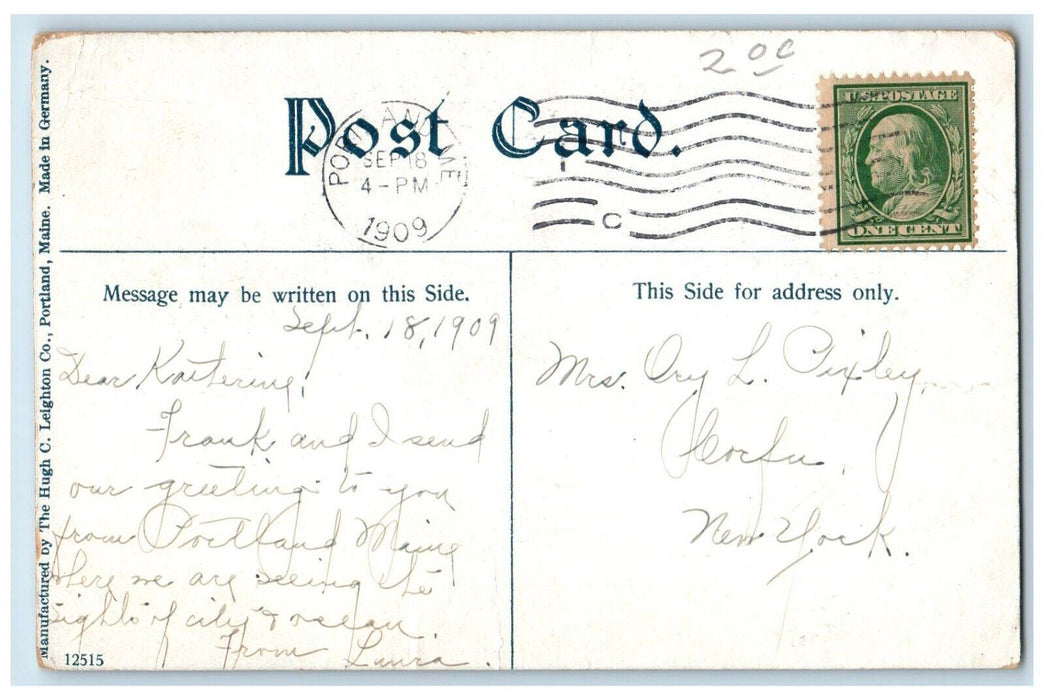 20c
Post Card.
PORTLAND ME
SEP 18
4-PM
1909
C
U.S. POSTAGE
ONE CENT
Manufactured by The Hugh C. Leighton Co., Portland, Maine. Made in Germany.
Message may be written on this Side.
Sept. 18, 1909
Dear Katerine,
Frank and I send
our greeting to you
from Portland Maine
where we are seeing the
sights of city & ocean.
From Laura.
12515
This Side for address only.
Mrs. Ory L. Pixley
Corfu,
New York.